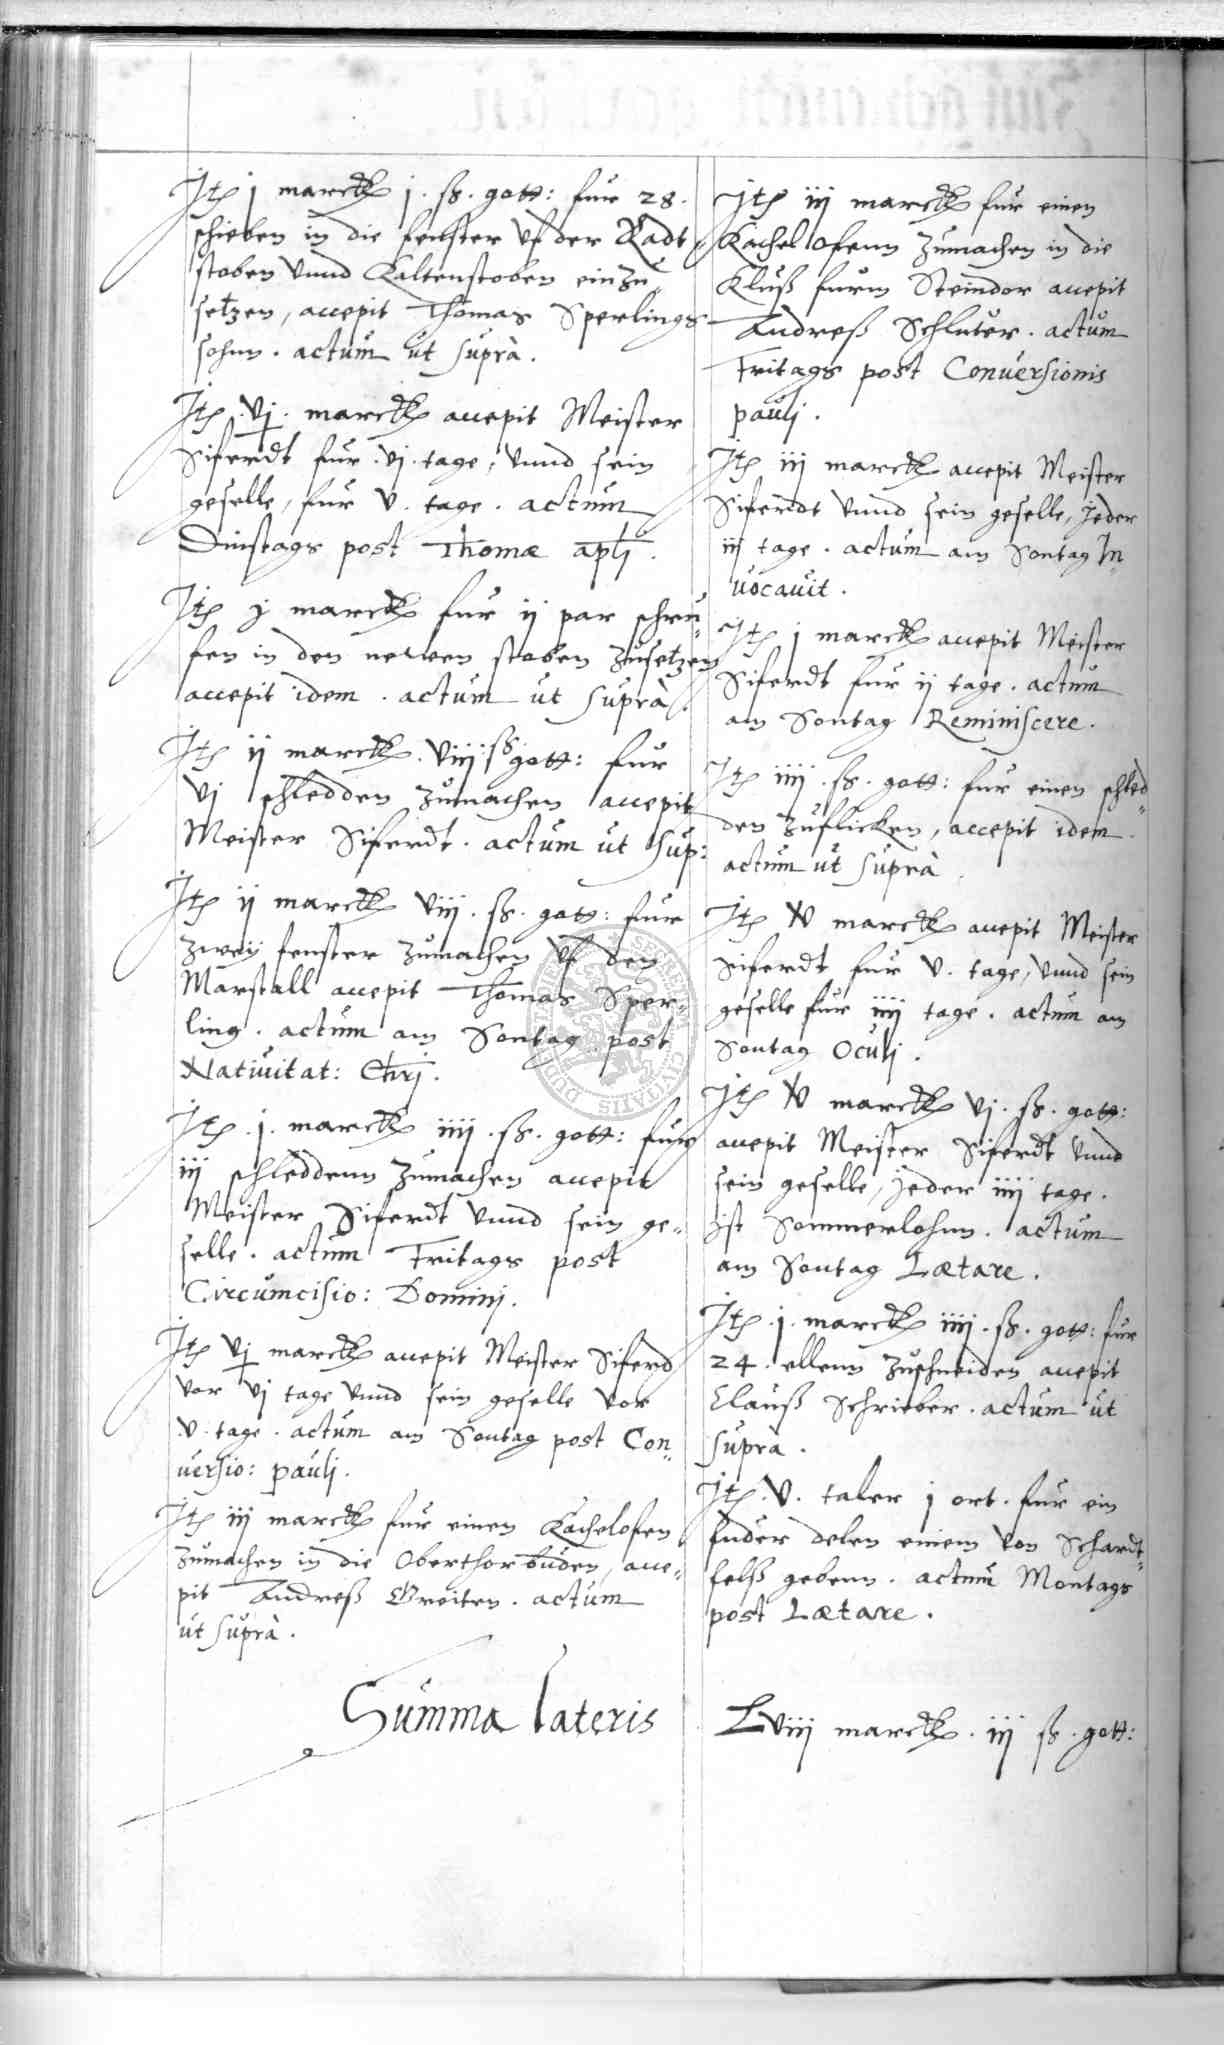 Jtem j marck j. ß. gott: fur 28.
schieben in die fenster vf der Radt
stoben vnnd Kaltenstoben einzu„
setzen, accepit Thomas Sperlings
sohnn. actum ut suprà.
Jtem .vj. marck accepit Meister
Siferdt fur .vj. tage, vnnd sein
geselle, fur v. tage. actum
Dinstags post Thomæ apli.
Jtem j marck fur ij par schru„
fen in den newen stoben zusetzen
accepit idem. actum ut suprà.
Jtem ij marck. viij ß gott: fur
vj schledden zumachen accepit
Meister Siferdt. actum ut sup:
Jtem ij marck viij. ß. gott: fur
zweij fenster zumachen vf den
Marstall accepit Thomas Sper
ling. actum am Sontag post
Natiuitat: Chri.
Jtem .j. marck iiij. ß. gott: fur
iij schleddenn zumachen accepit
Meister Siferdt vnnd sein ge„
selle. actum Fritags post
Circumcisio: Domini.
Jtem vj marck accepit Meister Siferd
vor vj tage vnnd sein geselle vor
v. tage. actum am Sontag post Con„
uersio: pauli.
Jtem iij marck fur einen Kachelofen
zumachen in die Oberthorbuden, acce„
pit Andreß Greiten. actum
ut suprà.
Summa lateris
Jtem iij marck fur einen
Kachel ofenn zumachen in die
Kluß furm Steindor accepit
Andreß Schluter. actum
Fritags post Conuersionis
pauli.
Jtem iij marck accepit Meister
Siferdt vnnd sein geselle, Jeder
iij tage. actum am Sontag In„
uocauit.
Jtem j marck accepit Meister
Siferdt fur ij tage. actum
am Sontag Reminiscere.
Jtem iiij. ß. gott: fur einen schled„
den zuflicken, accepit idem.
actum ut suprà.
Jtem v marck accepit Meister
Siferdt fur v. tage, vnnd sein
geselle fur iiij tage. actum am
Sontag Oculi.
Jtem v marck vj. ß. gott:
accepit Meister Siferdt vnnd
sein geselle, Jeder iiij tage.
Jst Sommerlohnn. actum
am Sontag Lætare.
Jtem .j. marck iiij. ß. gott: fur
24. ellenn zuschneiden accepit
Clauß Schrieber. actum ut
suprà.
Jtem .v. taler j ort. fur ein
fuder delen einem von Schardt„
felß gebenn. actum Montags
post Lætare.
Lviij marck. iij ß. gott:
SECRETUM CIVITATIS DUDE